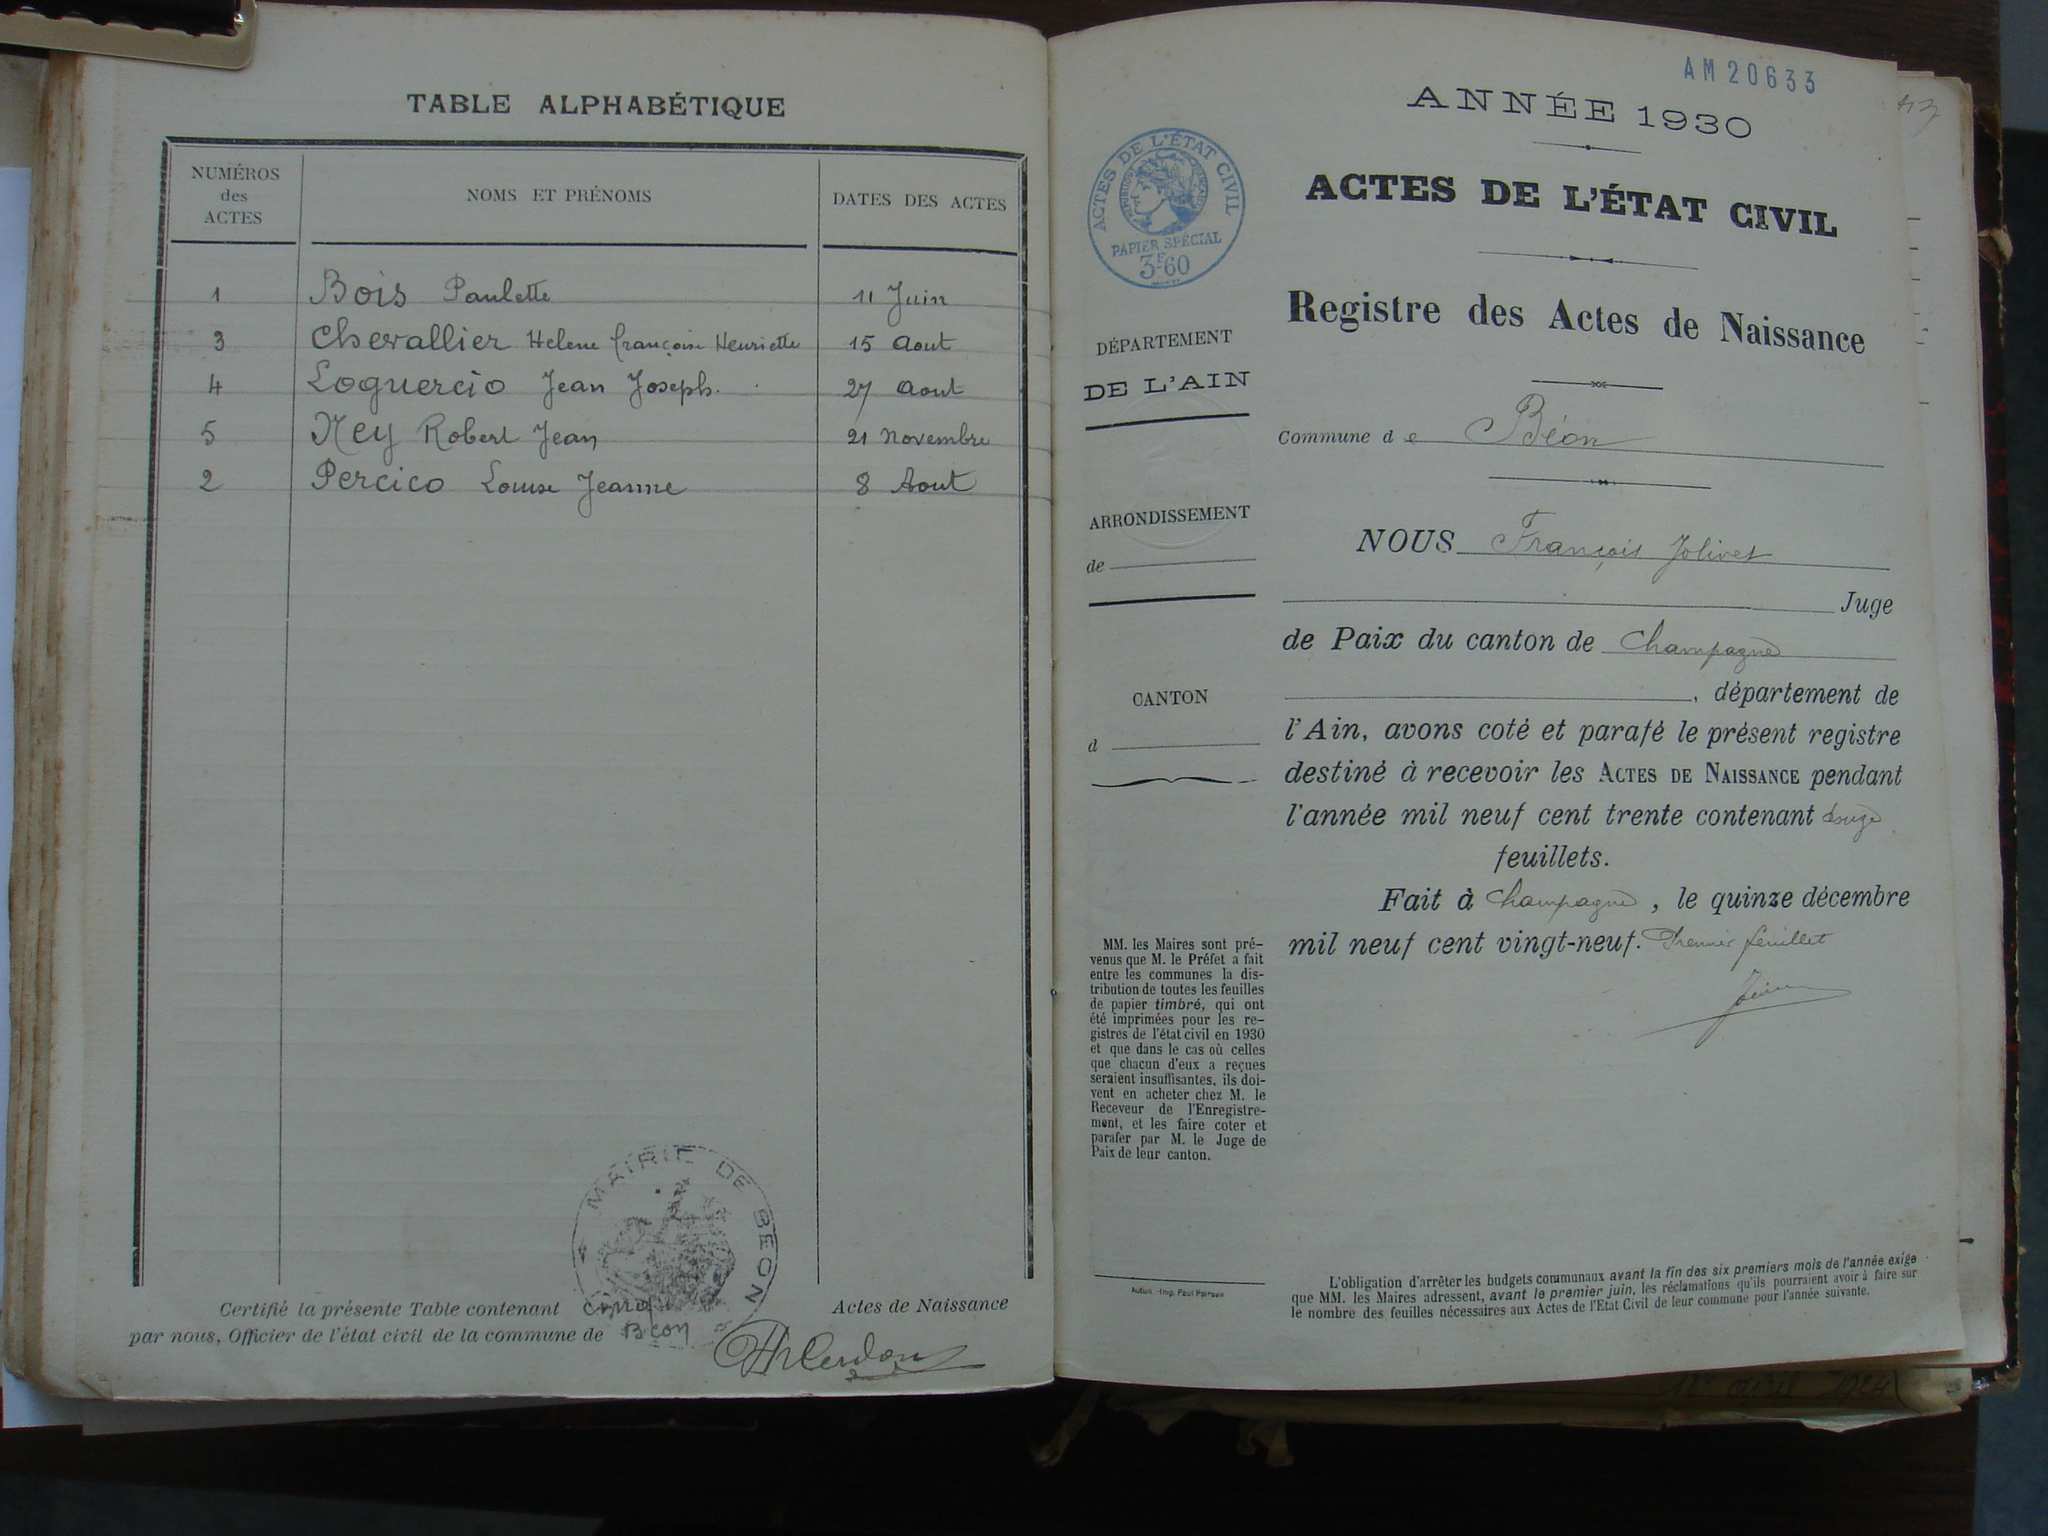 TABLE ALPHABÉTIQUE
NUMÉROS
des
ACTES
NOMS ET PRÉNOMS
DATES DES ACTES
1 Bois Paulette 11 Juin
3 Chevallier Helene françoise Henriette 15 Aout
4 Loguercio Jean Joseph. 27 Aout
5 Ney Robert Jean 21 Novembre
2 Percico Louise Jeanne 8 Aout
MAIRIE DE BEON
Certifié la présente Table contenant cinq Actes de Naissance
par nous, Officier de l'état civil de la commune de Béon
AM20633
ANNÉE 1930
ACTES DE L'ÉTAT CIVIL
PAPIER SPÉCIAL
3F60
ACTES DE L'ÉTAT CIVIL
Registre des Actes de Naissance
DÉPARTEMENT
DE L'AIN
Commune de Béon
ARRONDISSEMENT
de
NOUS François Jolivet
Juge
de Paix du canton de Champagne
CANTON
d
, département de
l'Ain, avons coté et parafé le présent registre
destiné à recevoir les ACTES DE NAISSANCE pendant
l'année mil neuf cent trente contenant douze
feuillets.
Fait à Champagne, le quinze décembre
mil neuf cent vingt-neuf. Premier feuillet
MM. les Maires sont pré-
venus que M. le Préfet a fait
entre les communes la dis-
tribution de toutes les feuilles
de papier timbré, qui ont
été imprimées pour les re-
gistres de l'état civil en 1930
et que dans le cas où celles
que chacun d'eux a reçues
seraient insuffisantes, ils doi-
vent en acheter chez M. le
Receveur de l'Enregistre-
ment, et les faire coter et
parafer par M. le Juge de
Paix de leur canton.
L'obligation d'arrêter les budgets communaux avant la fin des six premiers mois de l'année exige
que MM. les Maires adressent, avant le premier juin, les réclamations qu'ils pourraient avoir à faire sur
le nombre des feuilles nécessaires aux Actes de l'Etat Civil de leur commune pour l'année suivante.
avril 1924